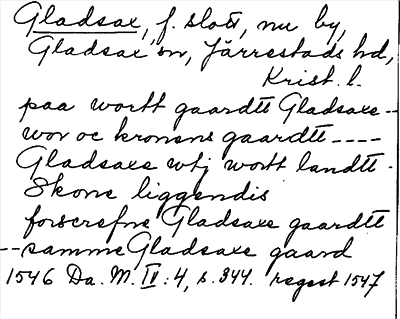 Gladsax, f. slott, nu by,
Gladsax sn, Järrestads hd,
Krist. l.
paa wortt gaardtt Gladsaxe --
wor oc kronens gaardtt ----
Gladsaxe wtj wortt landtt -
Skone liggendis
forscrefne Gladsaxe gaardtt
-- samme Gladsaxe gaard
1546 Da. M. IV: 4, s. 344. regest 1547